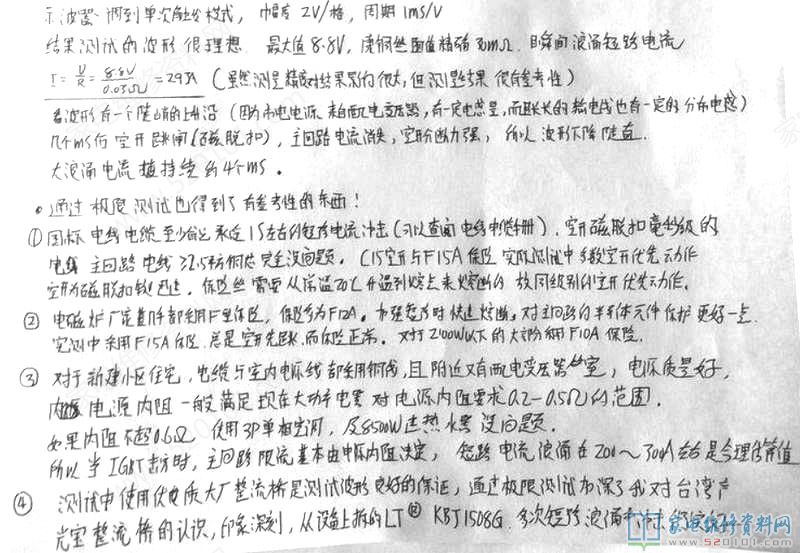 示波器调到单次触发模式，幅度 2V/格，周期 1ms/V
结果测试的波形很理想 最大值8.8V，康铜丝阻值精确30mΩ 瞬间浪涌短路电流
I=U/R=8.8V/0.03Ω=293A（虽然测量精度对结果影响很大，但测量结果很有参考性）
看波形有一个陡峭的上升沿（因为市电电源来自配电变压器，有一定电感量，而联长的输电线也有一定的分布电感）
几个ms后空开跳闸（磁脱扣），主回路电流消失，空开分断力强，所以波形下降陡直.
大浪涌电流值持续约4个ms。
• 通过极度测试也得到了有参考性的东西！
①国标电线电缆至少能承受1S左右的短路电流冲击（可以查阅电线电缆手册）.空开磁脱扣毫秒级的
电线 主回路电线≥1.5平方铜芯完全没问题。C15空开与F15A保险实际测试中多数空开优先动作
空开为磁脱扣较迅速. 保险丝需要从常温20℃升温到熔点来熔断的 故同级别的空开优先动作.
② 电磁炉厂家基本都采用F型保险，保险多为F12A. 加强短路时快速熔断. 对主回路的半导体元件保护更好一点.
实测中采用F15A保险 总是空开先跳.而保险正常. 对于2100W以下的大部分采用F10A保险.
③ 对于新建小区住宅，电缆与室内电源线都采用铜线，且附近又有配电变压器室，电源质量好，
内阻 电源内阻一般满足现在大功率电器对电源内阻要求0.2-0.5Ω的范围.
如果内阻不超0.6Ω 使用3P单相空调，及8500W速热水器没问题。
所以当IGBT击穿时，主回路限流基本由电源内阻决定，短路电流浪涌在200～300A左右是合理估算值
④ 测试中使用优质大厂整流桥是测试波形良好的保证，通过极限测试加深了我对台湾产
光宝整流桥的认识，印象深刻，从设备上拆的LT KBJ1508G.多次短路浪涌
家电维修资料网
www.520101.com